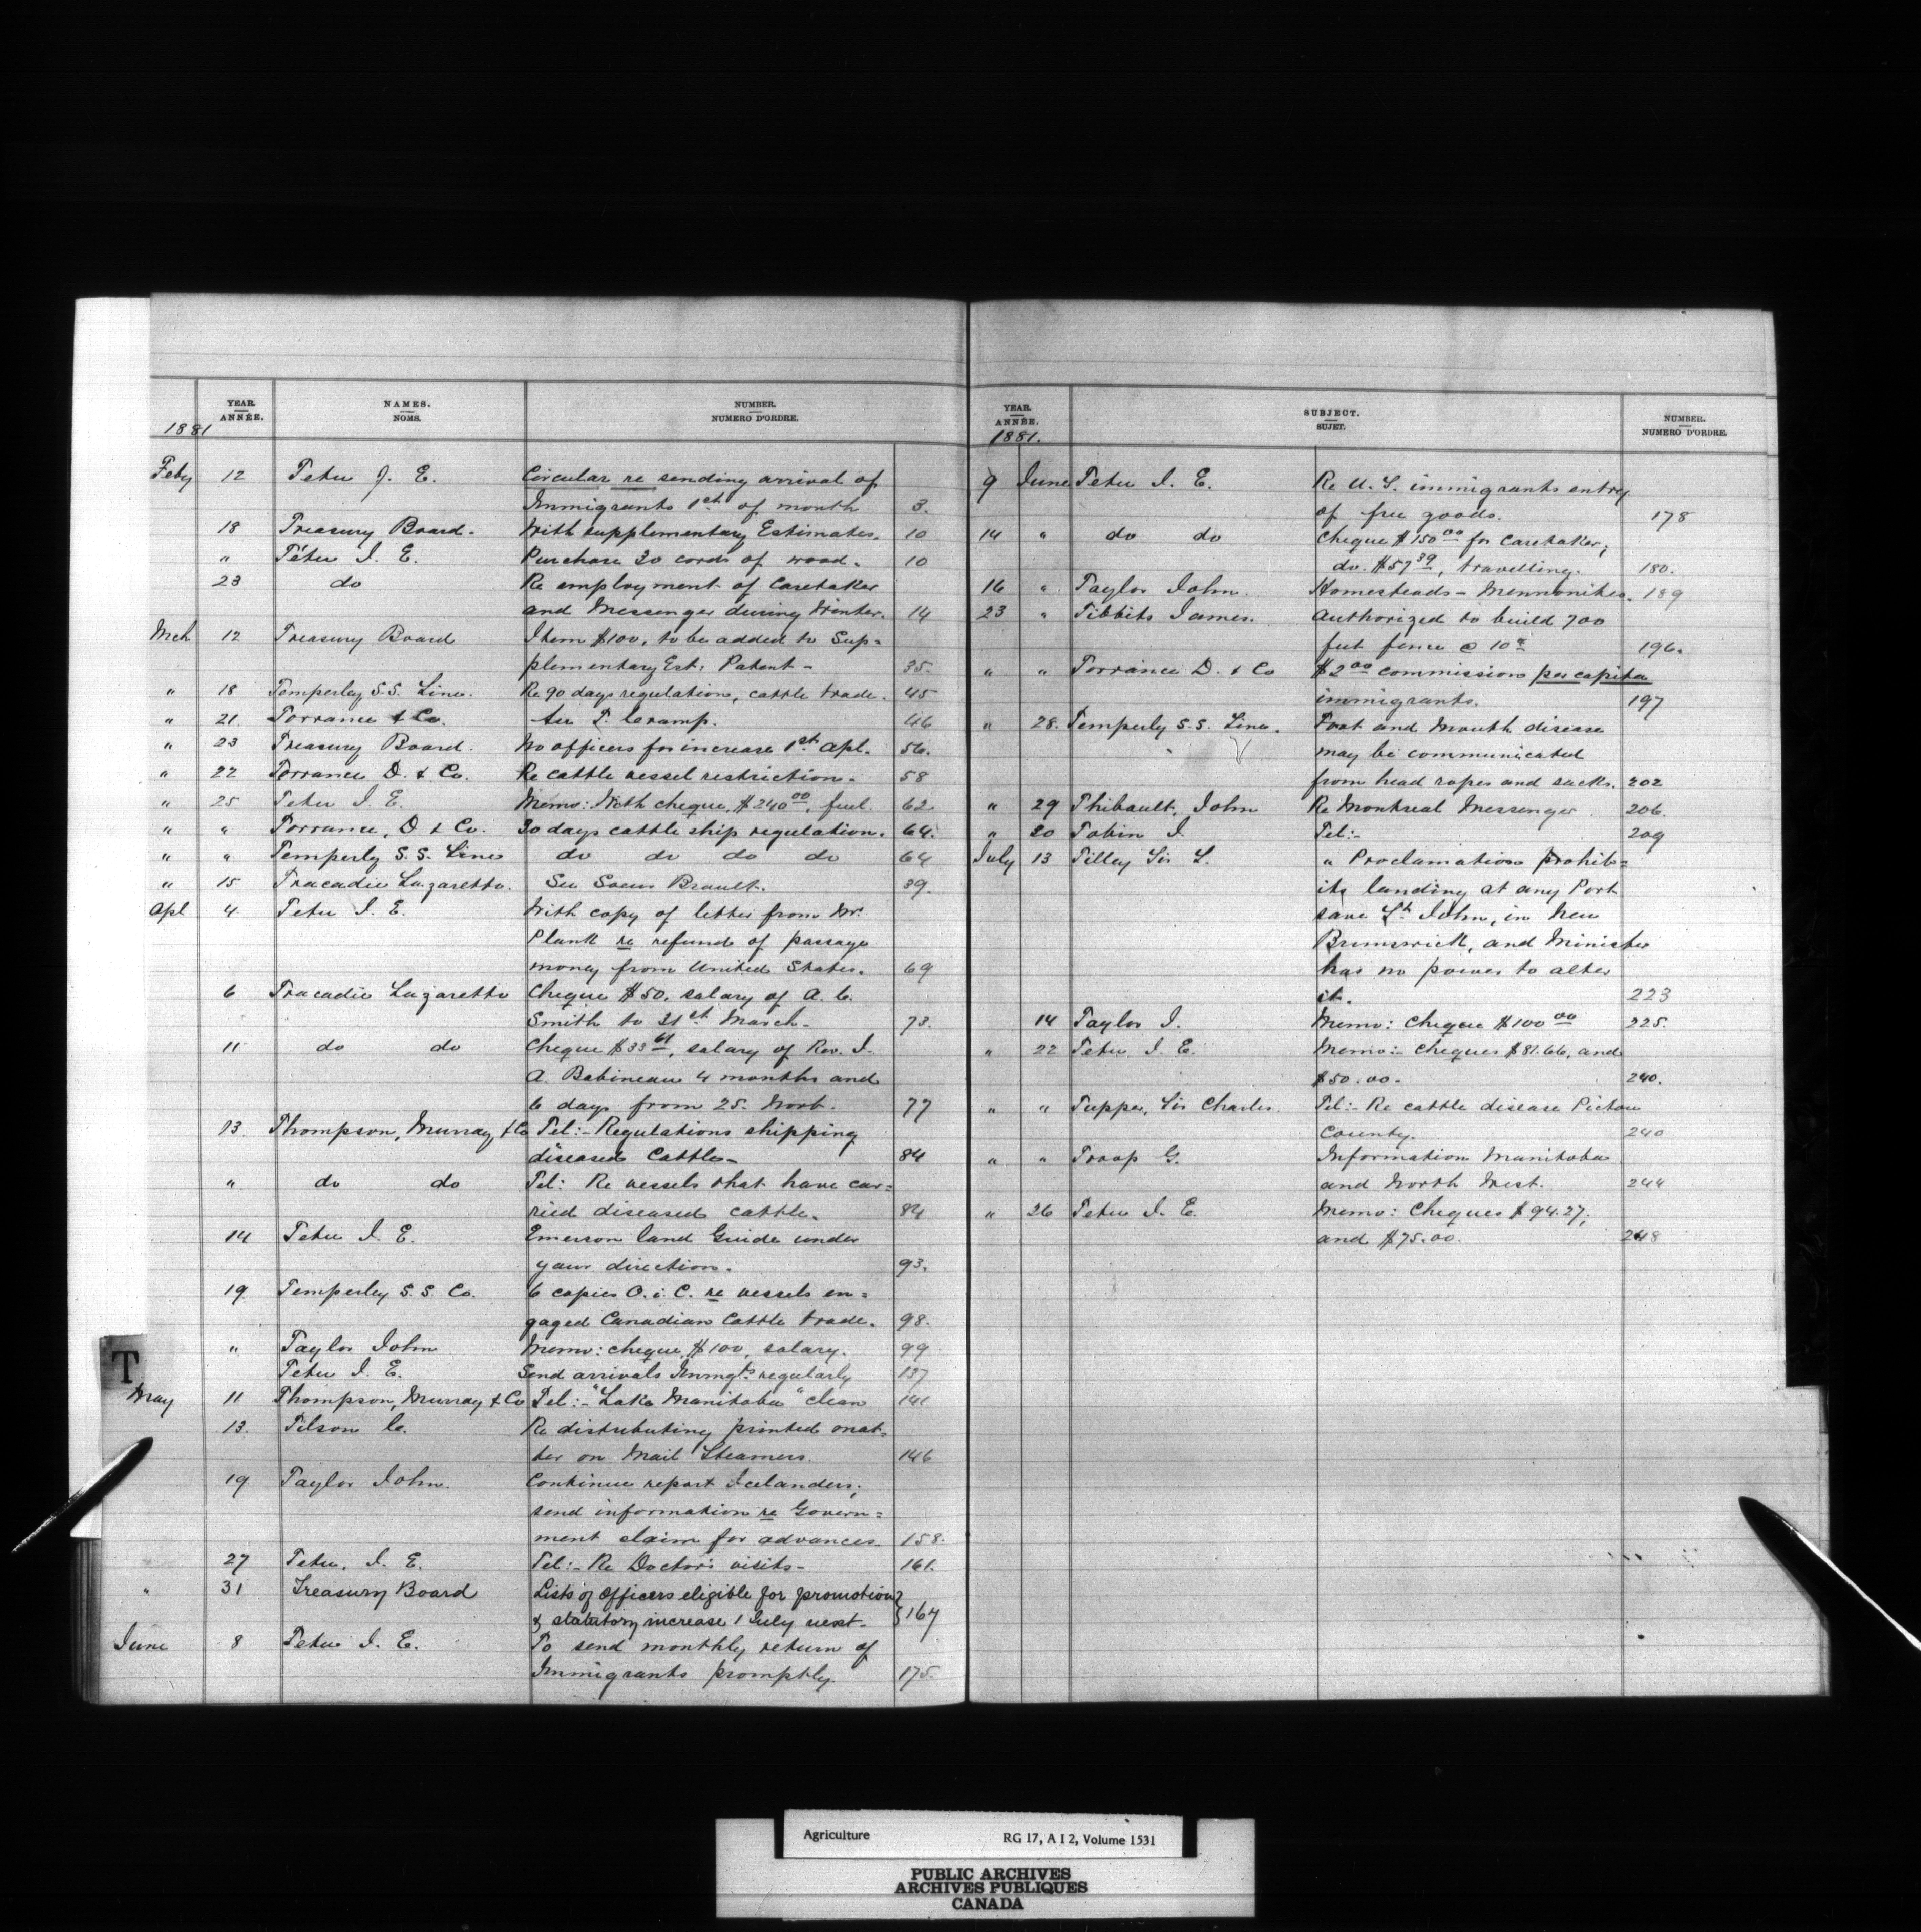 YEAR. NAMES. NUMBER.
ANNÉE. NOMS. NUMERO D'ORDRE.
1881
Feby 12 Tetu J. E. Circular re sending arrival of
Immigrants 1st of month 3.
18 Treasury Board. With supplementary Estimates. 10
" Tétu J. E. Purchase 30 cords of wood. 10
23 do Re employment of Caretaker
and Messenger during Winter. 14
Mch 12 Treasury Board Item $100, to be added to Sup=
plementary Est: Patent - 35.
" 18 Temperley S.S. Line. Re 90 days regulation, cattle trade. 45
" 21. Torrance & Co. 46
" 23 Treasury Board. No officers for increase 1st Apl. 56.
" 22 Torrance D. & Co. Re cattle vessel restriction. 58
" 25 Tetu J. E. Memo: With cheque, $240 00, fuel. 62
" " Torrance, D & Co. 30 days cattle ship regulation. 64.
" " Temperly S. S. Line do do do do 64
" 15 Tracadie Lazaretto. See Soeur Brault. 39.
Apl 4 Tetu J. E. With copy of letter from Mr.
Plank re refund of passage
money from United States. 69
6 Tracadie Lazaretto Cheque $50. salary of A. C.
Smith to 31st March. 73.
11 do do Cheque $33 61, salary of Rev. J.
A. Babineau 4 months and
6 days from 25. Novb. 77
13. Thompson, Murray, & Co Tel:- Regulations shipping
diseased Cattle- 84
" do do Tel: Re vessels that have car=
ried diseased cattle. 84
14 Tetu J. E. Emerson land Guide under
your direction. 93.
19 Temperley S. S. Co. 6 copies O. i. C. re vessels en=
gaged Canadian Cattle trade. 98.
" Taylor John Memo: cheque, $100, salary. 99
Tetu J. E. Send arrivals Immgts regularly 137
T
May 11 Thompson, Murray & Co Tel:- "Lake Manitoba" clean 141
13. Tilson C. Re distributing printed mat=
ter on Mail Steamers. 146
19 Taylor John. Continue report Icelanders;
send information re Govern=
ment claim for advances 158.
27 Tetu. J. E. Tel:- Re Doctor's visits- 161.
" 31 Treasury Board Lists of Officers eligible for promotion
& statutory increase 1 July next- 167
June 8 Tetu J. E. To send monthly return of
Immigrants promptly. 175.
YEAR. SUBJECT. NUMBER.
ANNÉE. SUJET. NUMERO D'ORDRE.
1881.
9 June Tetu J. E. Re U. S. immigrants entry
of free goods. 178
14 " do do Cheque $150 00 for Caretaker;
do. $57 39, travelling. 180.
16 " Taylor John. Homesteads - Mennonites. 189
23 " Tibbits James. Authorized to build 700
feet fence @ 10 c 196.
" " Torrance D. & Co $2 00 commission per capita
immigrants. 197
" 28. Temperly S. S. Line. Foot and Mouth disease
may be communicated
from head ropes and sacks. 202
" 29 Thibault, John Re Montreal Messenger 206.
" 30 Tobin J. Tel:- 209
July 13 Tilley Sir L. " Proclamation prohib=
its landing at any Port
save St John, in New
Brunswick, and Minister
has no power to alter
it. 223
14 Taylor J. Memo: Cheque $100 00 225.
" 22 Tetu J. E. Memo:- Cheques $81.66, and
$50.00. 240.
" " Tupper, Sir Charles. Tel:- Re cattle disease Pictou
County. 240
" " Troop G. Information Manitoba
and North West. 244
" 26 Tetu J. E. Memo: Cheques $94.27;
and $75.00. 248
Agriculture RG 17, A I 2, Volume 1531
PUBLIC ARCHIVES
ARCHIVES PUBLIQUES
CANADA